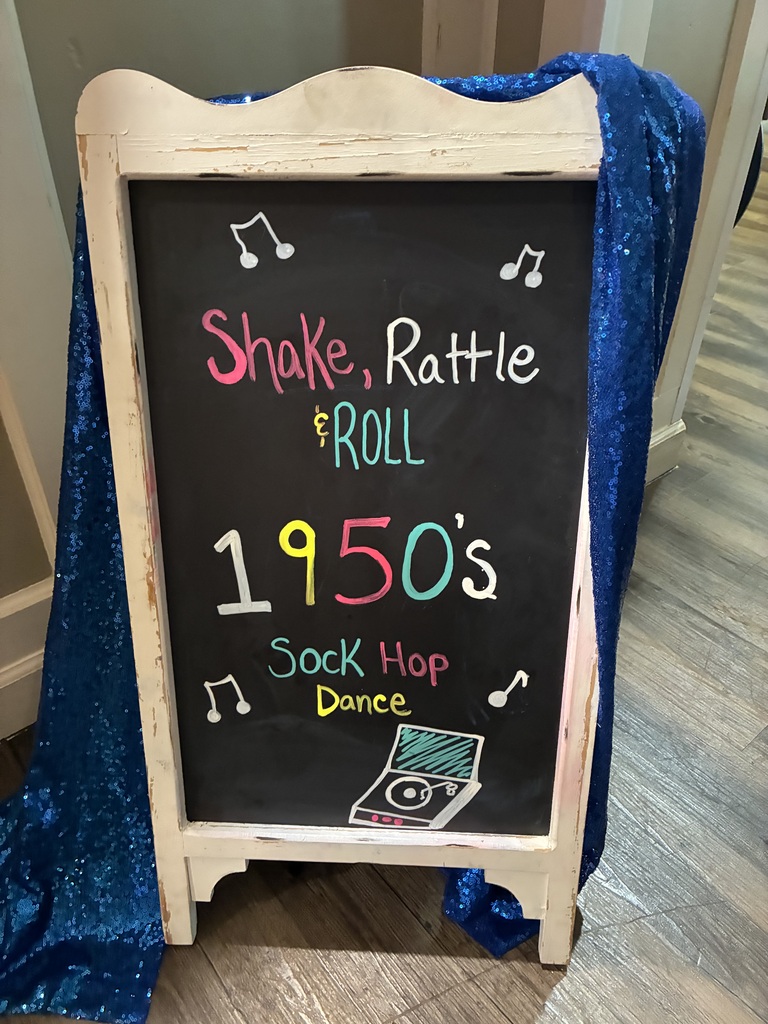 Shake, Rattle
& ROLL
1950's
Sock Hop
Dance